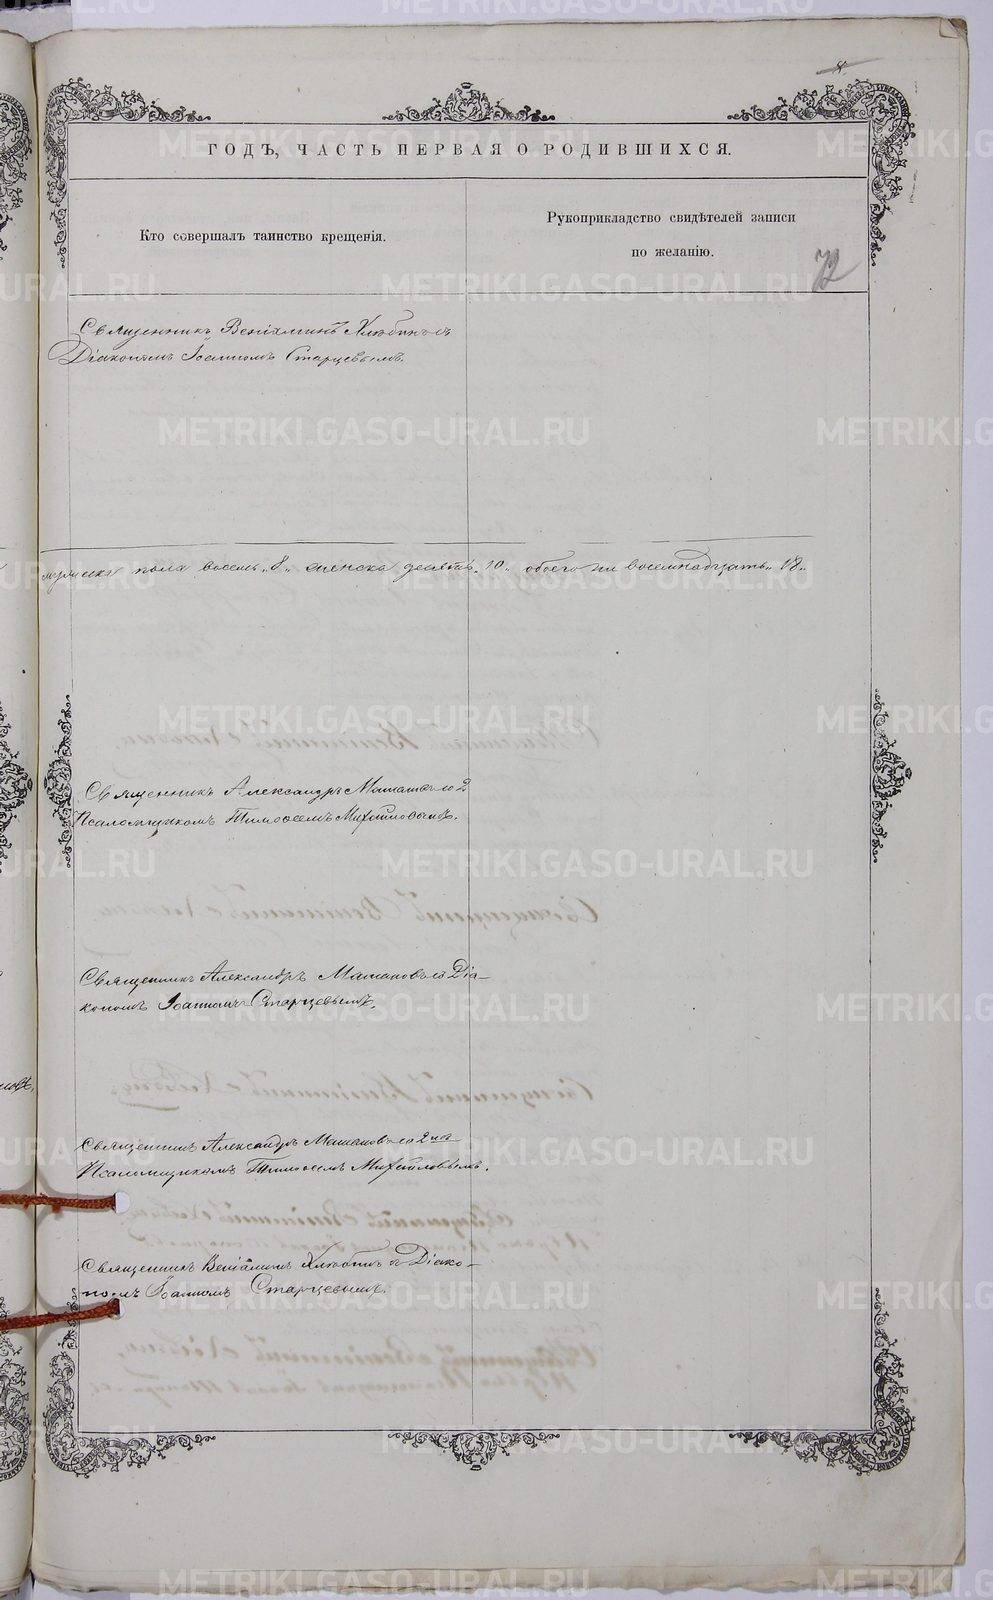 8.
ГОДЪ, ЧАСТЬ ПЕРВАЯ О РОДИВШИХСЯ.
Кто совершалъ таинство крещенія.
Рукоприкладство свидѣтелей записи
по желанію.
72
Священникъ Веніаминъ Хлѣбинъ съ
Діакономъ Іоанномъ Старцевымъ.
мужска пола восемь „8„ женска десять „10„ обоего пола восемнадцать „18„
Священникъ Александръ
Псаломщикомъ Тимоѳеемъ Михайловымъ.
Священникъ Александръ Мамановъ съ Діа-
кономъ Іоанномъ Старцевымъ.
Священникъ Александръ Мамановъ со 2мъ
Псаломщикомъ Тимоѳеемъ Михайловымъ.
Священникъ Веніаминъ Хлѣбинъ съ Діако-
номъ Іоанномъ Старцевымъ.
METRIKI.GASO-URAL.RU